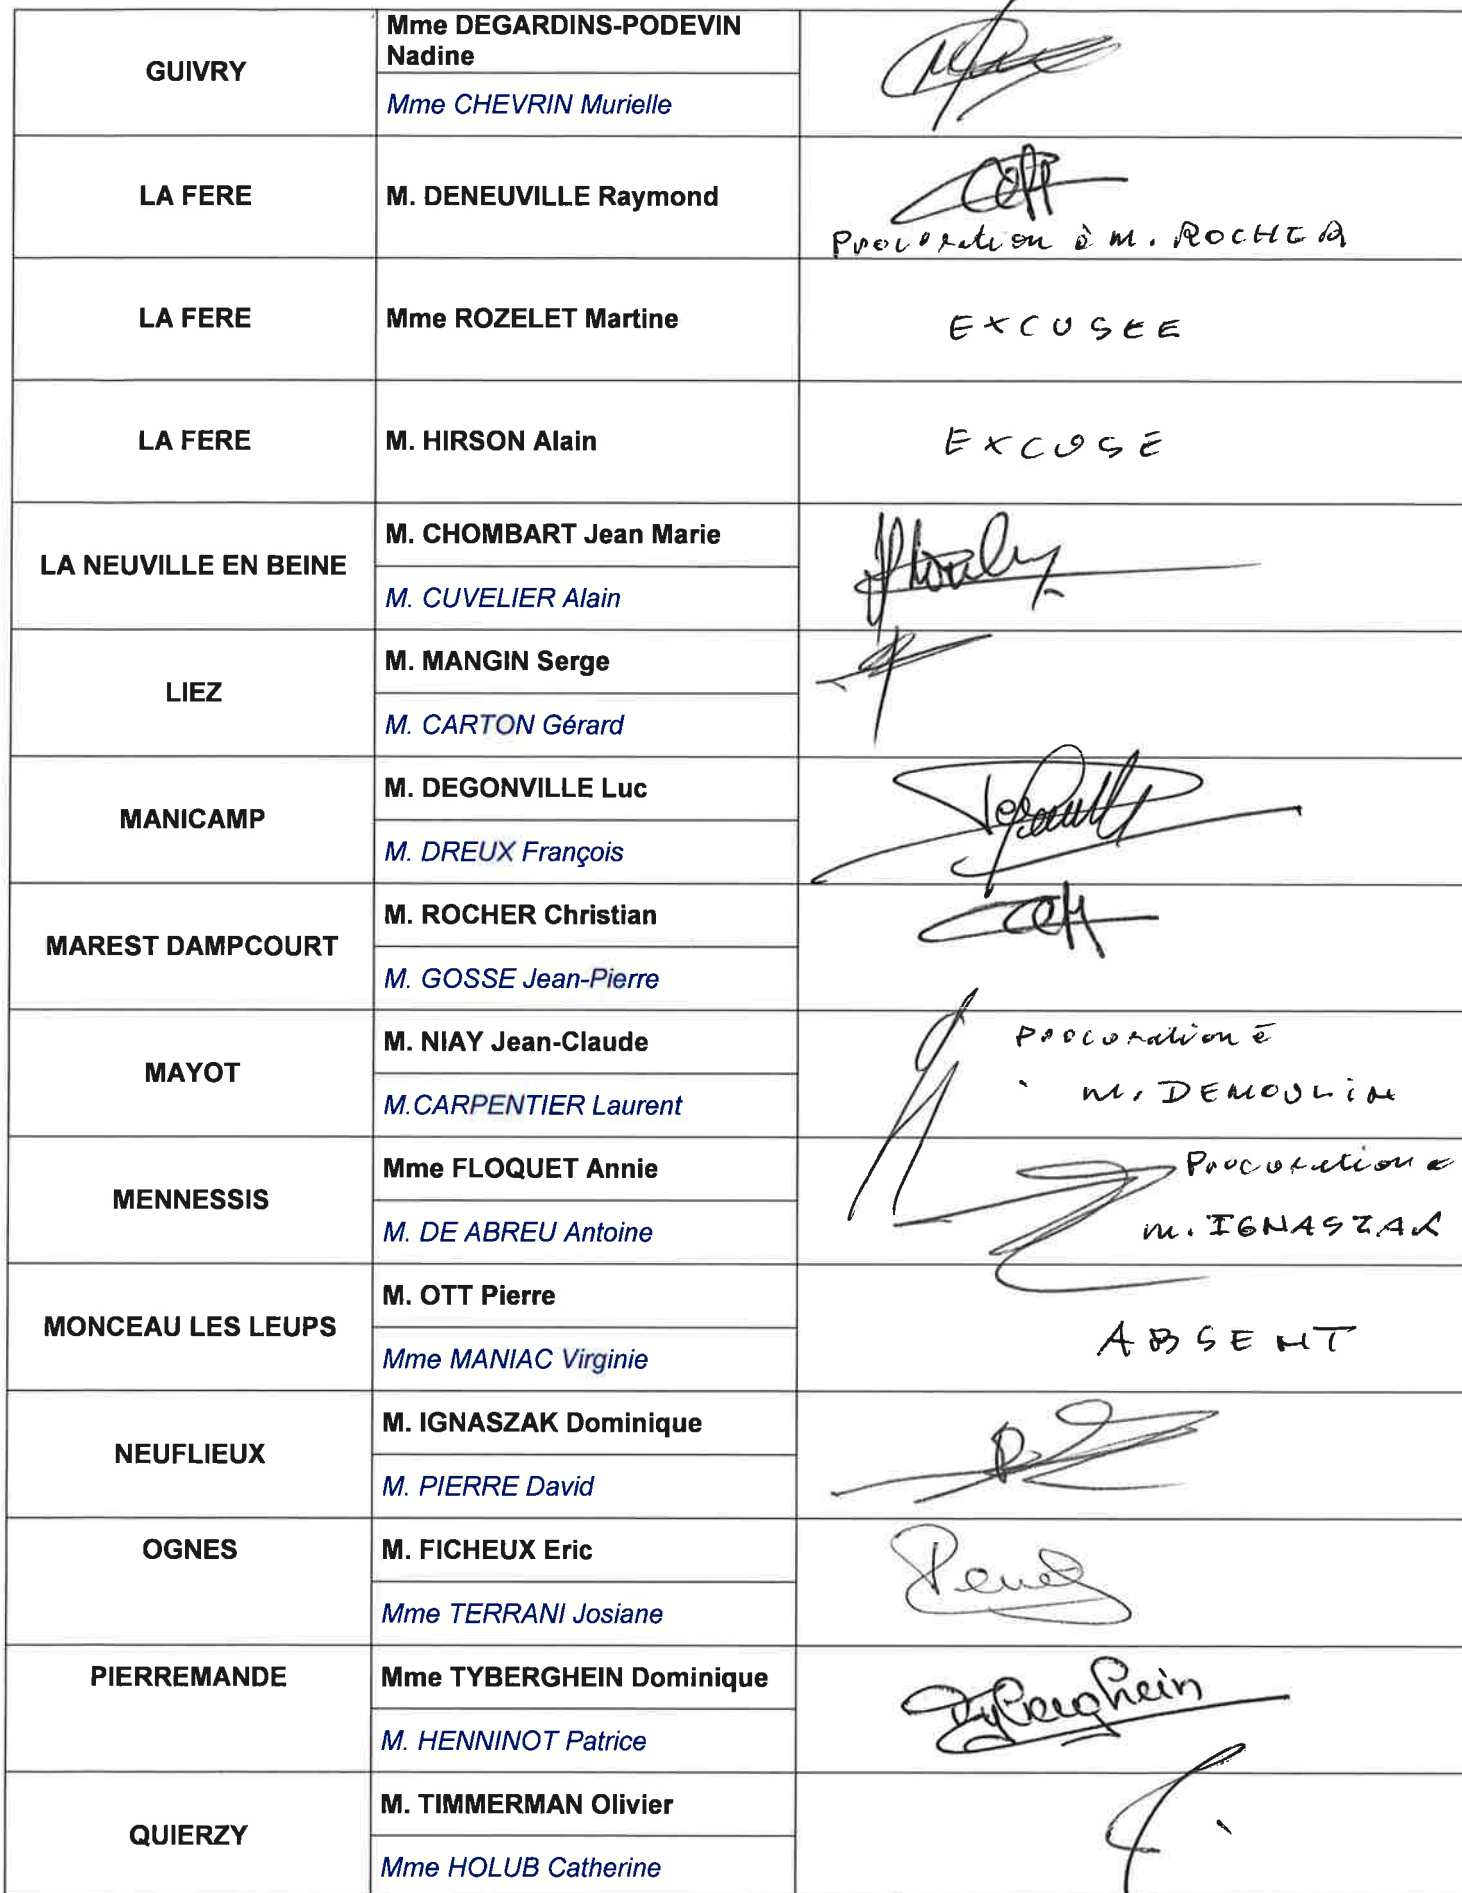 GUIVRY
Mme DEGARDINS-PODEVIN
Nadine
Mme CHEVRIN Murielle
LA FERE
M. DENEUVILLE Raymond
Procuration à M. ROCHER
LA FERE
Mme ROZELET Martine
EXCUSEE
LA FERE
M. HIRSON Alain
EXCUSE
LA NEUVILLE EN BEINE
M. CHOMBART Jean Marie
M. CUVELIER Alain
LIEZ
M. MANGIN Serge
M. CARTON Gérard
MANICAMP
M. DEGONVILLE Luc
M. DREUX François
MAREST DAMPCOURT
M. ROCHER Christian
M. GOSSE Jean-Pierre
MAYOT
M. NIAY Jean-Claude
M.CARPENTIER Laurent
Procuration à
M. DEMOULIN
MENNESSIS
Mme FLOQUET Annie
M. DE ABREU Antoine
Procuration à
M. IGNASZAK
MONCEAU LES LEUPS
M. OTT Pierre
Mme MANIAC Virginie
ABSENT
NEUFLIEUX
M. IGNASZAK Dominique
M. PIERRE David
OGNES
M. FICHEUX Eric
Mme TERRANI Josiane
PIERREMANDE
Mme TYBERGHEIN Dominique
M. HENNINOT Patrice
Tyberghein
QUIERZY
M. TIMMERMAN Olivier
Mme HOLUB Catherine